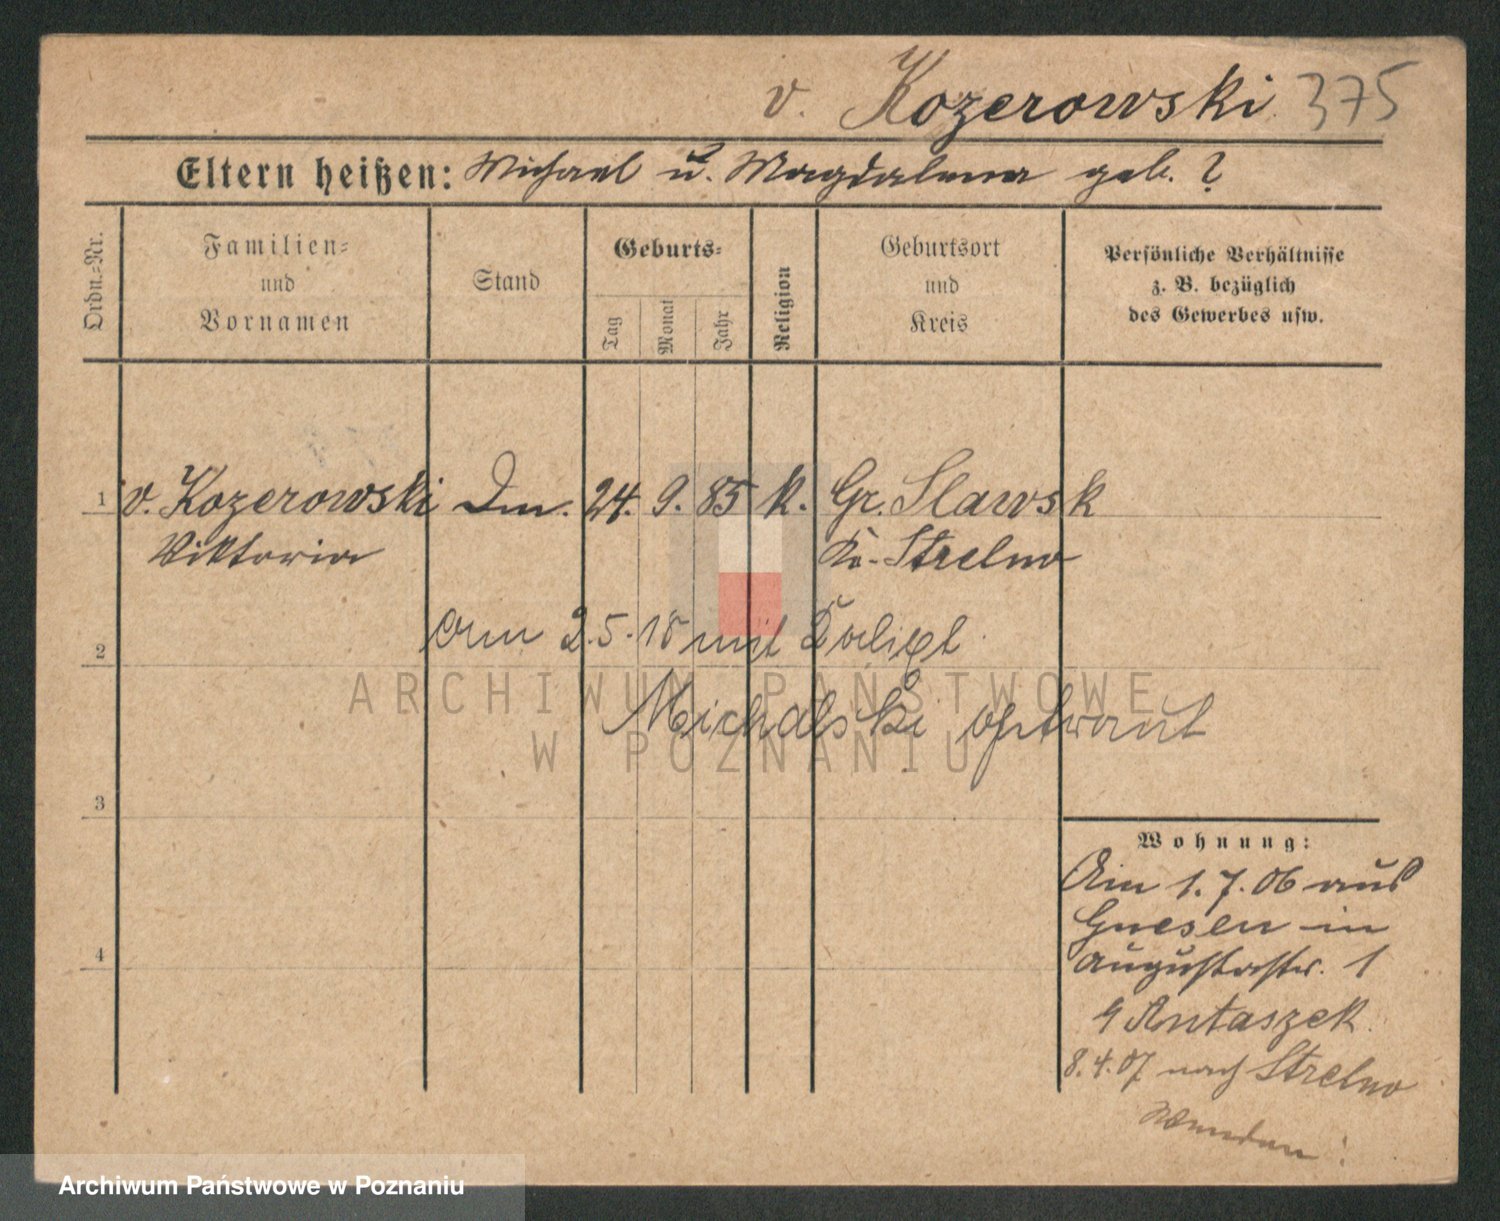 v. Kozerowski 375
Eltern heißen: Michael u. Magdalena geb. ?
Ordn.=Nr.
Familien=
und
Vornamen
Stand
Geburts=
Tag
Monat
Jahr
Religion
Geburtsort
und
Kreis
Persönliche Verhältnisse
z. B. bezüglich
des Gewerbes usw.
1 v. Kozerowski Dm. 24. 9. 85 k. Gr. Slawsk
Viktoria Kr. Strelno
am 2.5.18 mit
2
Michalski
3
4
Wohnung:
Am 1.7.06 aus
Gnesen in
Augustastr. 1
b Antaszek
8.4.07 nach Strelno
ARCHIWUM PAŃSTWOWE
W POZNANIU
Archiwum Państwowe w Poznaniu